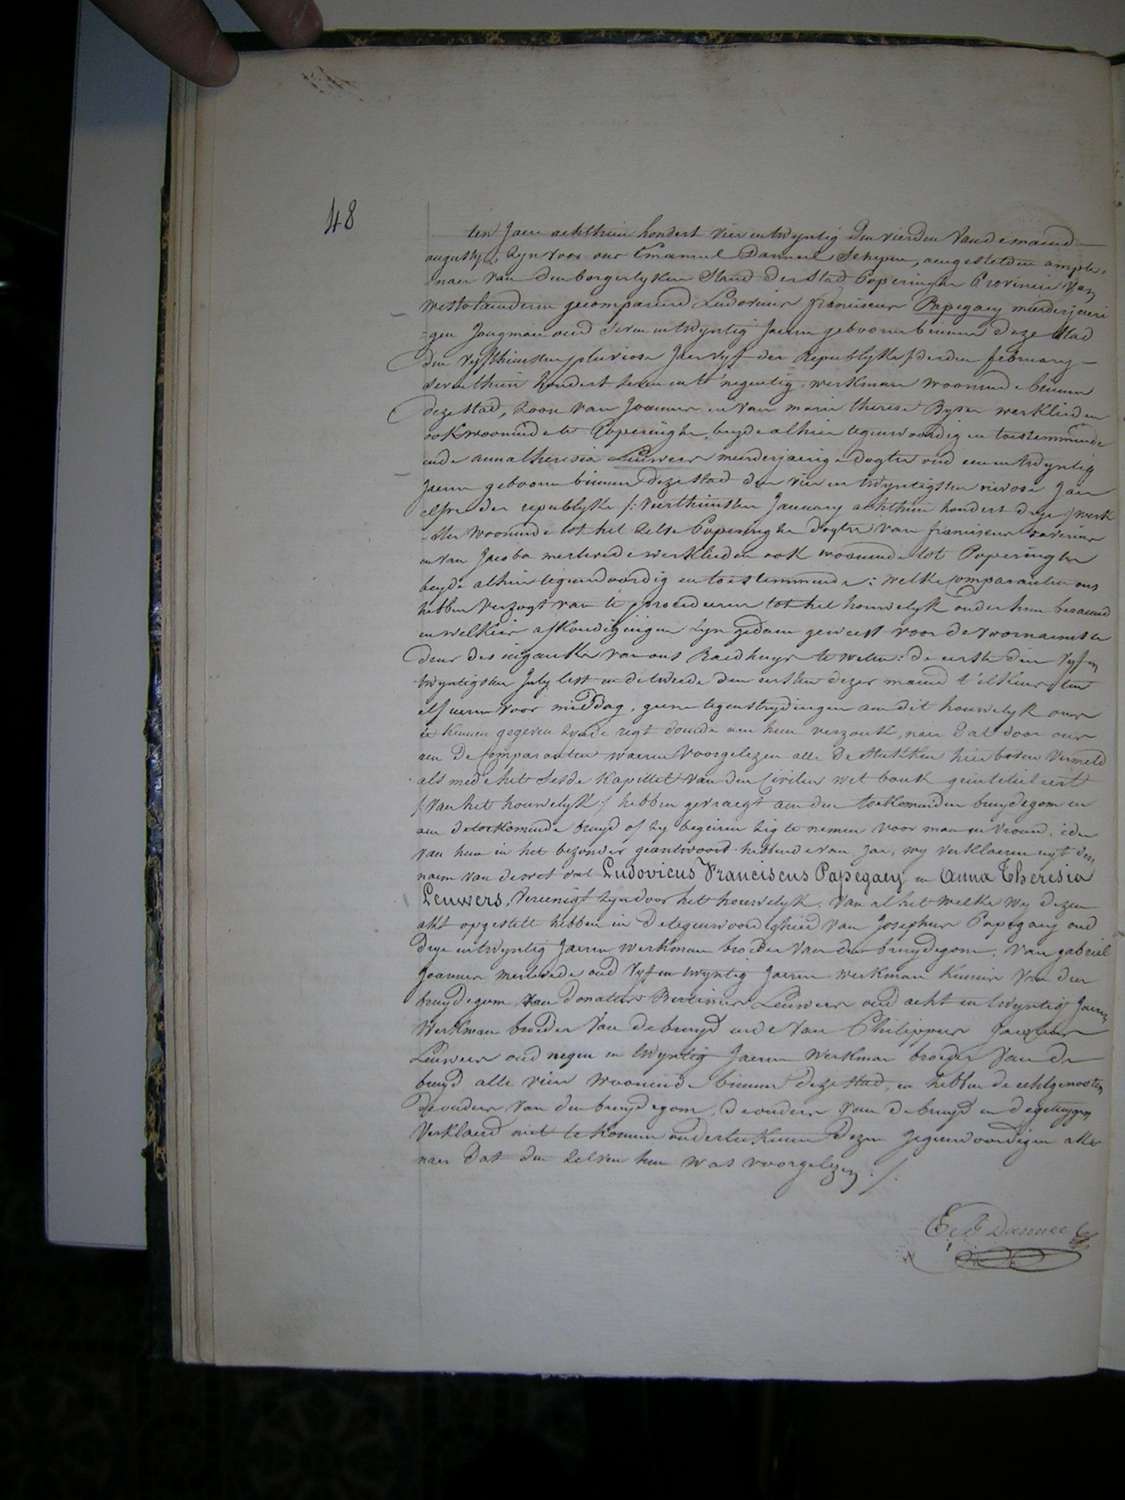 48
ten Jaere achthien hondert vier en twyntig den vierden van de maend
augusty, zyn voor ons Emanuel Danneel Schepen, aengestelden ampte-
naer van den borgerlyken Stand der Stad Poperinghe Provincie van
westvlaenderen gecompareerd Ludovicus franciscus Papegaey meerderjaeri
gen Jongman oud Seven en twyntig Jaeren geboren binnen deze Stad
den vyfthiensten pluviose Jaer vyf der Republyke /: derden february
seventhien hondert seven en t'negentig, werkman woonende binnen
deze stad, zoon van Joannes en van marie therese Ryser werklieden
ook woonende te Poperinghe, beyde alhier tegenwoordig en toestemmende
ende anna theresia Leuwers meerderjaerige dogter oud een en twyntig
Jaeren geboren binnen deze stad den vier en twyntigsten nivose Jaer
elf der republyke /: veerthiensten January achthien hondert drye :/ werk
ster woonende tot het zelve Poperinghe dogter van franciscus xaverius
en van Jacoba merlevede werklieden ook woonende tot Poperinghe
beyde alhier tegenwoordig en toestemmende: welke comparanten ons
hebben verzogt van te procedeeren tot het houwelyk onder hun beraemd
en welkers afkondigingen zyn gedaen geweest voor de voornaemste
deur des ingank van ons Raedhuys te weten: de eerste den vyf en
twyntigsten July lest en de tweede den eersten dezer maend t'elkens ten
elf uren voor middag, geene tegenstrydingen aen dit houwelyk ons
te kennen gegeven zynde regt doende aen hun verzoek, naer dat door ons
aen de Comparanten waeren voorgelezen alle de stukken hierboven vermeld
als mede het Sesde Kapittel van den Civilen wet bouk geintituleert
/: van het houwelyk :/ hebben gevraegt aen den toekomenden bruydegom en
aen de toekomende bruyd of zy begeiren zig te nemen voor man en vrouw, ider
van hun in het bezonder geantwoord hebbende van Jae, wy verklaeren uyt den
naem van de wet dat Ludovicus Franciscus Papegaey en Anna Theresia
Leuwers, vereenigt zyn door het houwelyk. van al het welke wy dezen
akt opgestelt hebben in de tegenwoordigheid van Josephus Papegaey oud
drye en twyntig Jaeren werkman broeder van den bruydegom, van gabriel
Joannes merlevede oud vyf en twyntig Jaeren werkman kennis van den
bruydegom, van Donatus Leuwers oud acht en twyntig Jaeren
werkman broeder van de bruyd ende van Philippus Jacobus
Leuwers oud negen en twyntig Jaeren werkman broeder van de
bruyd alle vier woonende binnen deze stad, en hebben de echtgenooten
de ouders van den bruydegom, de ouders van de bruyd en de getuygen
verklaerd niet te konnen onderteekenen dezen jegenwoordigen akt
naer dat den zelven hun was voorgelezen ./.
E. F. Danneel